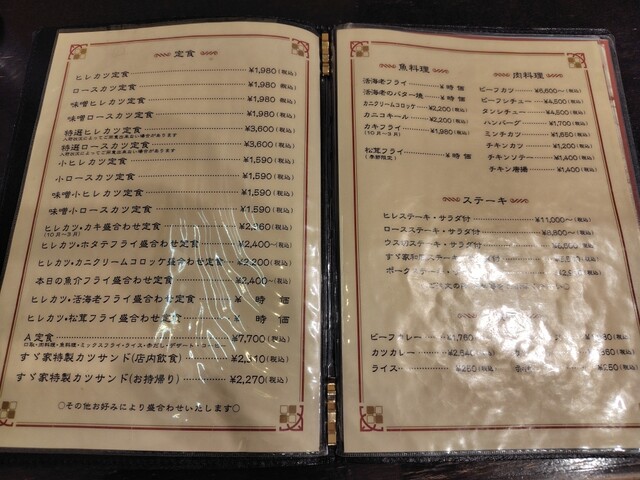 定食
ヒレカツ定食 ¥1,980(税込)
ロースカツ定食 ¥1,980(税込)
味噌ヒレカツ定食 ¥1,980(税込)
味噌ロースカツ定食 ¥1,980(税込)
特選ヒレカツ定食 ¥3,600(税込)
特選ロースカツ定食 ¥3,600(税込)
小ヒレカツ定食 ¥1,590(税込)
小ロースカツ定食 ¥1,590(税込)
味噌小ヒレカツ定食 ¥1,590(税込)
味噌小ロースカツ定食 ¥1,590(税込)
ヒレカツ・カキ盛合わせ定食 ¥2,360(税込)
(10月〜3月)
ヒレカツ・ホタテフライ盛合わせ定食 ¥2,400〜(税込)
ヒレカツ・カニクリームコロッケ盛合わせ定食 ¥2,200(税込)
本日の魚介フライ盛合わせ定食 ¥2,400〜(税込)
ヒレカツ・活海老フライ盛合わせ定食 ¥ 時価
ヒレカツ・松茸フライ盛合わせ定食 ¥ 時価
A定食 ¥7,700(税込)
すゞ家特製カツサンド(店内飲食)
すゞ家特製カツサンド(お持帰り) ¥2,270(税込)
○その他お好みにより盛合わせいたします○
魚料理
活海老フライ ¥ 時価
活海老のバター焼 ¥ 時価
カニクリームコロッケ ¥2,200(税込)
カニコキール ¥2,200(税込)
カキフライ ¥1,980(税込)
(10月〜3月)
松茸フライ ¥ 時価
(季節限定)
肉料理
ビーフカツ ¥6,600〜(税込)
ビーフシチュー ¥4,500(税込)
タンシチュー ¥4,500(税込)
ハンバーグ ¥1,700(税込)
ミンチカツ ¥1,650(税込)
チキンカツ ¥1,200(税込)
チキンソテー ¥1,400(税込)
チキン唐揚 ¥1,400(税込)
ステーキ
ヒレステーキ・サラダ付 ¥11,000〜(税込)
ロースステーキ・サラダ付 ¥8,800〜(税込)
ステーキ・サラダ付
ビーフカレー ¥1,760
カツカレー
ライス